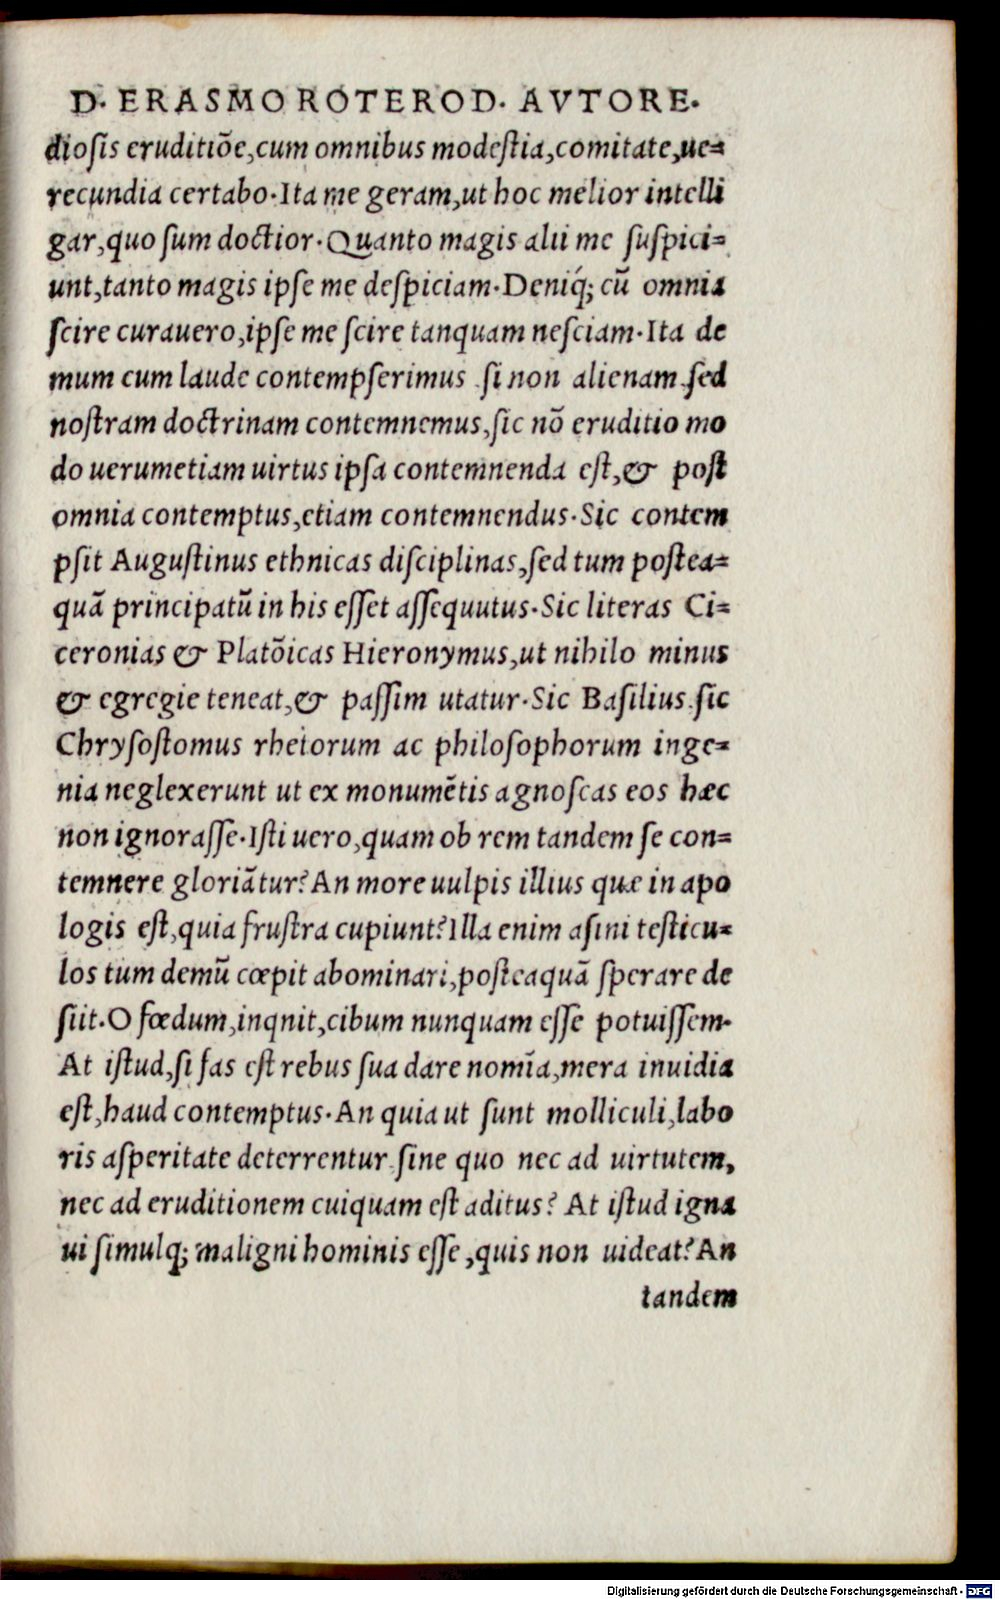 D. ERASMO ROTEROD. AVTORE.
dioſis eruditiõe,cum omnibus modeſtia,comitate,ue=
recundia certabo.Ita me geram,ut hoc melior intelli
gar,quo ſum doctior.Quanto magis alii me ſuſpici=
unt,tanto magis ipſe me deſpiciam.Deniq́; cũ omnia
ſcire curauero,ipſe me ſcire tanquam neſciam.Ita de
mum cum laude contempſerimus ſi non alienam ſed
noſtram doctrinam contemnemus,ſic nõ eruditio mo
do uerumetiam uirtus ipſa contemnenda eſt,& poſt
omnia contemptus,etiam contemnendus.Sic contem
pſit Auguſtinus ethnicas diſciplinas,ſed tum poſtea=
quã principatũ in his eſſet aſſequutus.Sic literas Ci=
ceronias & Platõicas Hieronymus,ut nihilo minus
& egregie teneat,& paſſim utatur.Sic Baſilius ſic
Chryſoſtomus rhetorum ac philoſophorum inge=
nia neglexerunt ut ex monumẽtis agnoſcas eos hæc
non ignoraſſe.Iſti uero,quam ob rem tandem ſe con=
temnere gloriãtur?An more uulpis illius quæ in apo
logis eſt,quia fruſtra cupiunt?Illa enim aſini teſticu=
los tum demũ cœpit abominari,poſteaquã ſperare de
ſiit.O fœdum,inqnit,cibum nunquam eſſe potuiſſem.
At iſtud,ſi fas eſt rebus ſua dare nomĩa,mera inuidia
eſt,haud contemptus.An quia ut ſunt molliculi,labo
ris aſperitate deterrentur ſine quo nec ad uirtutem,
nec ad eruditionem cuiquam eſt aditus? At iſtud igna
ui ſimulq; maligni hominis eſſe,quis non uideat?An
tandem
Digitalisierung gefördert durch die Deutsche Forschungsgemeinschaft - DFG